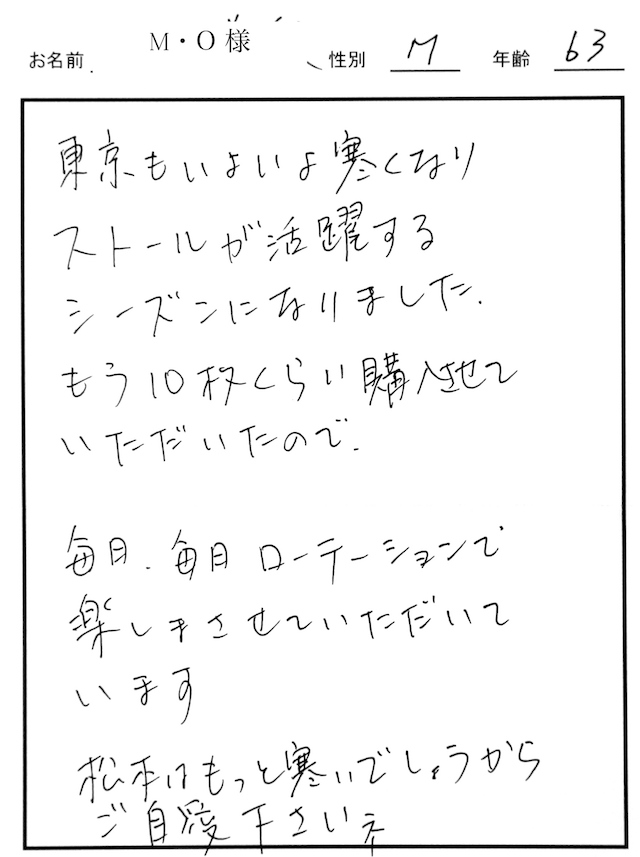 お名前 M・O様 性別 M 年齢 63
東京もいよいよ寒くなり
ストールが活躍する
シーズンになりました.
もう10枚くらい購入させて
いただいたので.
毎日.毎日ローテーションで
楽しまさせていただいて
います
松本はもっと寒いでしょうから
ご自愛下さいネ